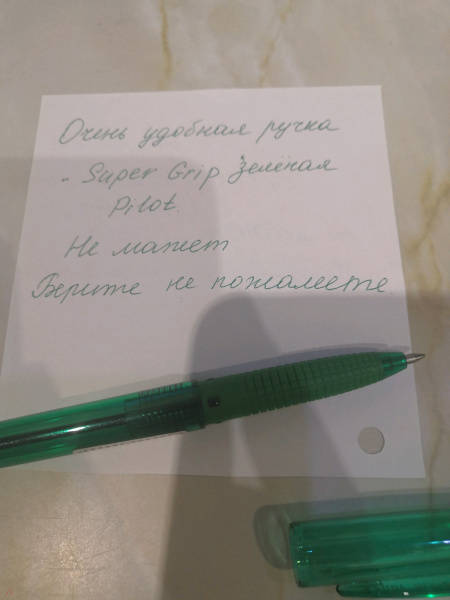 Очень удобная ручка
- Super Grip Зелёная
Pilot.
Не мажет
Берите не пожалеете